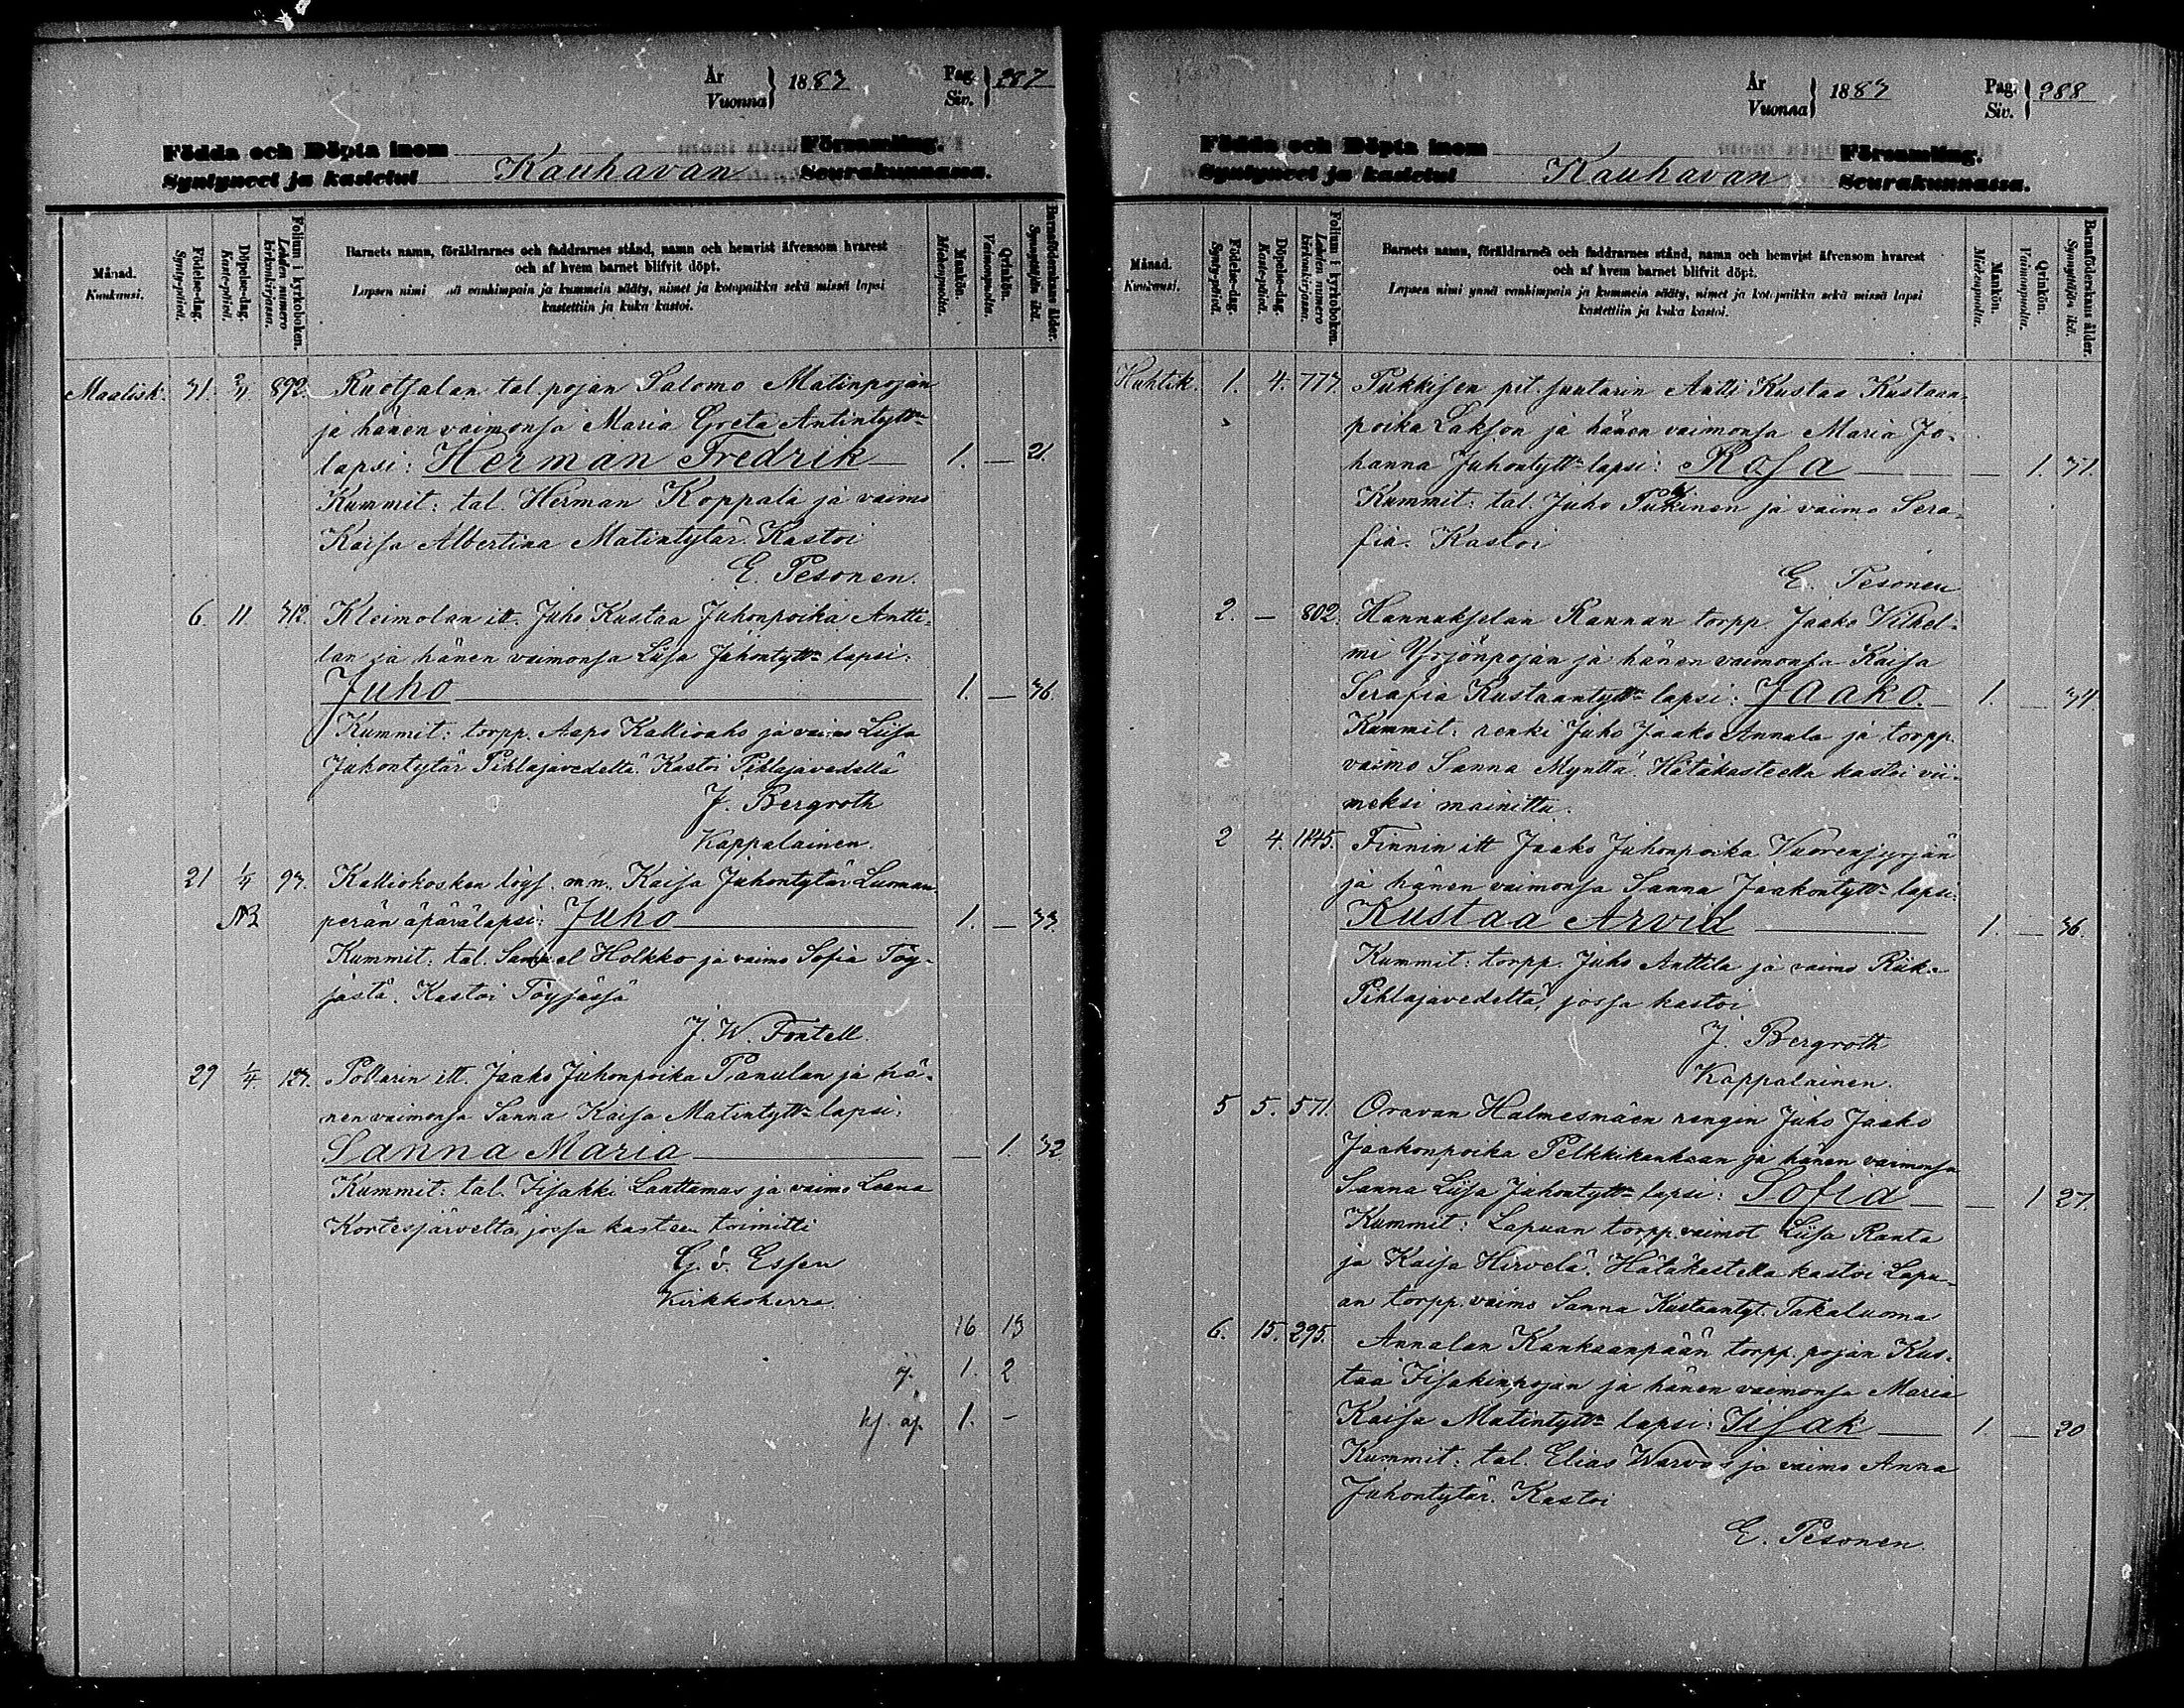 År
Vuonna } 1883
Pag.
Siv. } 287
Födda och Döpta inom
Syntyneet ja kastetut
Kauhavan
Församling.
Seurakunnassa.
Månad.
Kuukausi.
Födelse-dag.
Synty-päivä.
Döpelse-dag.
Kaste-päivä.
Folium i kyrkoboken.
Lehden numero
kirkonkirjassa.
Barnets namn, föräldrarnes och faddrarnes stånd, namn och hemvist äfvensom hvarest
och af hvem barnet blifvit döpt.
Lapsen nimi ynnä vanhimpain ja kummein sääty, nimet ja kotopaikka sekä missä lapsi
kastettiin ja kuka kastoi.
Mankön.
Miehenpuolia.
Qvinkön.
Vaimonpuolia.
Barnaföderskans ålder.
Synnyttäjän ikä.
Maalisk. 31. 892. Ruotsalan tal. pojan Salomo Matinpojan
ja hänen vaimonsa Maria Greta Antintytt:n
lapsi: Herman Fredrik 1. — 21.
Kummit: tal. Herman Koppala ja vaimo
Kaisa Albertina Matintytär. Kastoi
E. Pesonen.
6. 11 312. Kleimolan itt. Juho Kustaa Juhonpoika Antti-
lan ja hänen vaimonsa Liisa Juhontytt:n lapsi:
Juho 1. — 36
Kummit: torpp. Aapo Kallioaho ja vaimo Liisa
Juhontytär Pihlajavedeltä. Kastoi Pihlajavedellä
J. Bergroth
Kappalainen.
21 1/4 93. Kalliokosken löys. m.n. Kaisa Juhontytär Luoman
NB perän äpärälapsi: Juho 1. — 33.
Kummit: tal. Samuel Holkko ja vaimo Sofia Töy-
jästä. Kastoi Töysässä
J. W. Fontell.
29 1/4 123. Pollarin itt. Jaako Juhonpoika Panulan ja hä-
nen vaimonsa Sanna Kaisa Matintytt:n lapsi:
Sanna Maria — 1. 32
Kummit: tal. Iisakki Lauttamus ja vaimo Leena
Kortesjärveltä, jossa kasteen toimitti
G. v. Essen
Kirkkoherra.
16 13
1. 2
1. -
År
Vuonna } 1883
Pag.
Siv. } 288
Födda och Döpta inom
Syntyneet ja kastetut
Kauhavan
Församling.
Seurakunnassa.
Månad.
Kuukausi.
Födelse-dag.
Synty-päivä.
Döpelse-dag.
Kaste-päivä.
Folium i kyrkoboken.
Lehden numero
kirkonkirjassa.
Barnets namn, föräldrarnes och faddrarnes stånd, namn och hemvist äfvensom hvarest
och af hvem barnet blifvit döpt.
Lapsen nimi ynnä vanhimpain ja kummein sääty, nimet ja kotopaikka sekä missä lapsi
kastettiin ja kuka kastoi.
Mankön.
Miehenpuolia.
Qvinkön.
Vaimonpuolia.
Barnaföderskans ålder.
Synnyttäjän ikä.
Huhtik. 1. 4. 777. Pukkisen pit. suutarin Antti Kustaa Kustaan-
poika Lakson ja hänen vaimonsa Maria Jo-
hanna Juhontytt:n lapsi: Rosa — 1. 31.
Kummit: tal. Juho Pukkinen ja vaimo Sera-
fia. Kastoi
E. Pesonen
2. — 802. Hannukselan Rannan torpp. Jaako Vilhel-
mi Yrjönpojan ja hänen vaimonsa Kaisa
Serafia Kustaantytt:n lapsi: Jaako. 1. —
Kummit: renki Juho Jaako Annala ja torpp.
vaimo Sanna Myntta. Hätäkasteella kastoi vii-
meksi mainittu.
2 4. 1145. Finnin itt Jaako Juhonpoika Vuorenjyrjän
ja hänen vaimonsa Sanna Jaakontytt:n lapsi:
Kustaa Arvid 1. — 36.
Kummit: torpp. Juho Anttila ja vaimo Riik:a
Pihlajavedeltä, jossa kastoi
J. Bergroth
Kappalainen.
5 5. 571. Oravan Halmesmäen rengin Juho Jaako
Jaakonpoika Pelkkikankaan ja hänen vaimonsa
Sanna Liisa Juhontytt:n lapsi: Sofia — 1 27.
Kummit: Lapuan torpp. vaimot Liisa Ranta
ja Kaisa Hirvelä. Hätäkastella kastoi Lapu-
an torpp. vaimo Sanna Kustaantyt. Takaluoma
6. 15. 295. Annalan Kankaanpään torpp. pojan Kus-
taa Iisakinpojan ja hänen vaimonsa Maria
Kaisa Matintytt:n lapsi: Iisak 1. — 20
Kummit: tal. Elias Warvos ja vaimo Anna
Juhontytär. Kastoi
E. Pesonen.